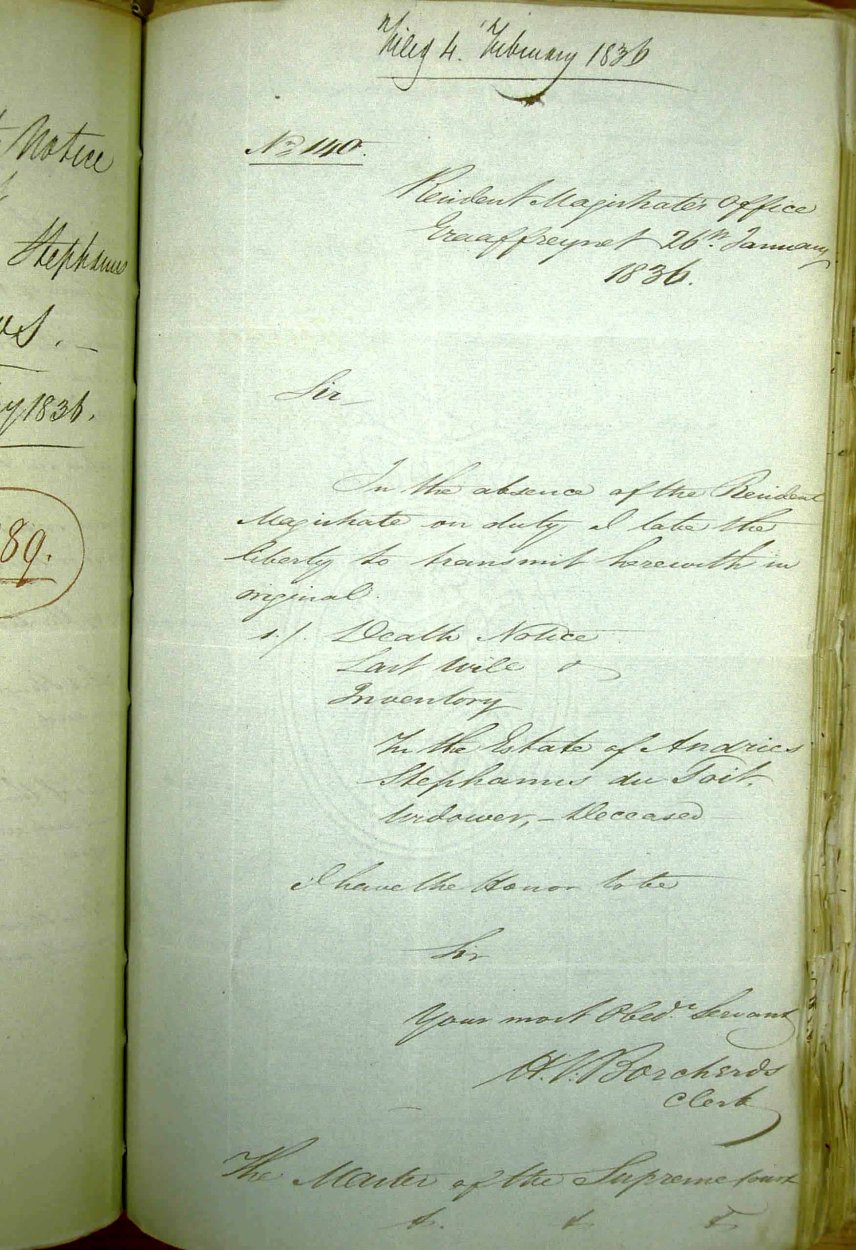 Notice
Stephanus
1836.
89.
Filed 4. February 1836
No. 140.
Resident Magistrate's Office
Graaffreynet 26th January
1836.
Sir
In the absence of the Resident
Magistrate on duty I take the
liberty to transmit herewith in
original.
1./ Death Notice
Last Will &
Inventory
In the Estate of Andries
Stephanus du Toit.
Widower, – Deceased
I have the Honor to be
Sir
Your most Obedt. Servant
Borcherds
Clerk
The Master of the Supreme Court
&. & &